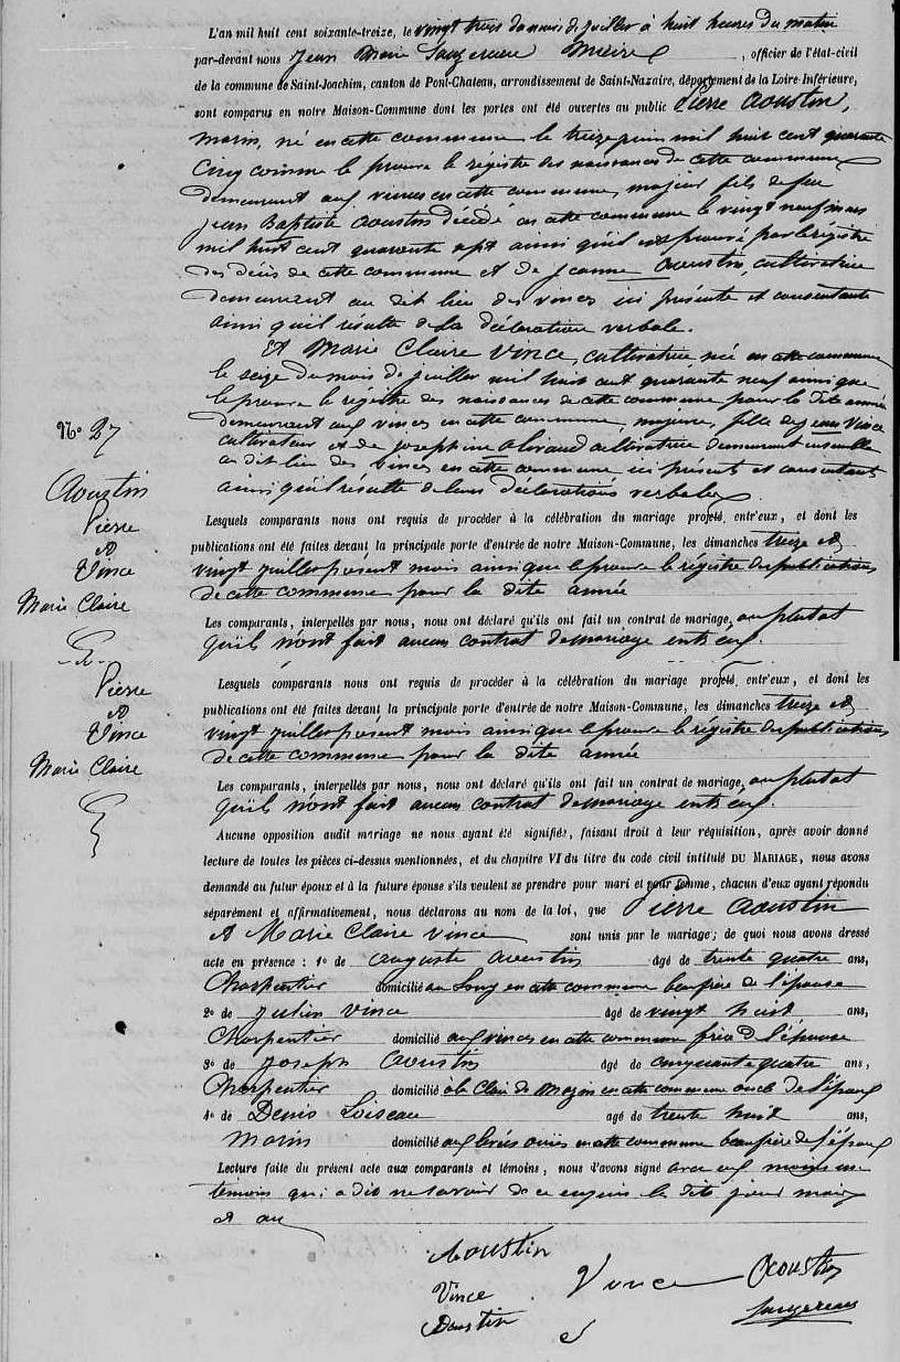 L'an mil huit cent soixante-treize, le vingt trois du mois de juillet à huit heures du matin
par-devant nous Jean Marie Maire, officier de l'état-civil
de la commune de Saint-Joachim, canton de Pont-Chateau, arrondissement de Saint-Nazaire, département de la Loire-Inférieure,
sont comparus en notre Maison-Commune dont les portes ont été ouvertes au public Pierre Aoustin,
marin, né en cette commune le treize juin mil huit cent quarante
cinq comme le prouve le régistre des naissances de cette commune
demeurant aux vinces en cette commune, majeur fils de feu
Jean Baptiste Aoustin décédé en cette commune le vingt neuf mars
mil huit cent quarante sept ainsi qu'il est prouvé par le régistre
des décès de cette commune et de Jeanne Aoustin, cultivatrice
demeurant au dit lieu des vinces ici présente et consentante
ainsi qu'il résulte de sa déclaration verbale.
Et Marie Claire Vince, cultivatrice née en cette commune
le seize du mois de juillet mil huit cent quarante neuf ainsi que
le prouve le régistre des naissances de cette commune pour la dite année
demeurant aux vinces en cette commune, majeure, fille de Jean Vince
cultivateur et de Josephine cultivatrice demeurant ensemble
au dit lieu des vinces en cette commune ici présents et consentants
ainsi qu'il résulte de leurs déclarations verbales.
N° 27
Aoustin
Pierre
et
Vince
Marie Claire
Lesquels comparants nous ont requis de procéder à la célébration du mariage projeté, entr'eux, et dont les
publications ont été faites devant la principale porte d'entrée de notre Maison-Commune, les dimanches treize et
vingt juillet présent mois ainsi que le prouve le régistre des publications
de cette commune pour la dite année
Les comparants, interpellés par nous, nous ont déclaré qu'ils ont fait un contrat de mariage, ou plutot
qu'ils n'ont fait aucun contrat de mariage entr'eux.
Pierre
et
Vince
Marie Claire
Lesquels comparants nous ont requis de procéder à la célébration du mariage projeté, entr'eux, et dont les
publications ont été faites devant la principale porte d'entrée de notre Maison-Commune, les dimanches treize et
vingt juillet présent mois ainsi que le prouve le régistre des publications
de cette commune pour la dite année
Les comparants, interpellés par nous, nous ont déclaré qu'ils ont fait un contrat de mariage, ou plutot
qu'ils n'ont fait aucun contrat de mariage entr'eux.
Aucune opposition audit mariage ne nous ayant été signifiée, faisant droit à leur réquisition, après avoir donné
lecture de toutes les pièces ci-dessus mentionnées, et du chapitre VI du titre du code civil intitulé DU MARIAGE, nous avons
demandé au futur époux et à la future épouse s'ils veulent se prendre pour mari et pour femme, chacun d'eux ayant répondu
séparément et affirmativement, nous déclarons au nom de la loi, que Pierre Aoustin
et Marie Claire Vince sont unis par le mariage; de quoi nous avons dressé
acte en présence : 1° de Auguste Aoustin âgé de trente quatre ans,
Charpentier domicilié en cette commune beaufrère de l'épouse
2° de Julien Vince âgé de vingt huit ans,
Charpentier domicilié aux vinces en cette commune frère de l'épouse
3° de Joseph Aoustin âgé de cinquante quatre ans,
Charpentier domicilié en cette commune oncle de l'époux
4° de Denis Loiseau agé de trente huit ans,
Marin domicilié en cette commune beaufrère de l'époux
Lecture faite du présent acte aux comparants et témoins, nous l'avons signé avec eux moins un
temoin qui a dit ne savoir de ce enquis le dits jour mois
et an
Aoustin
Vince Vince Aoustin
Aoustin